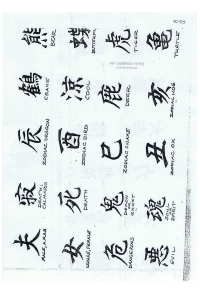 熊 蝶 虎 亀
BEAR BUTTERFLY TIGER TURTLE
鶴 涼 鹿 亥
CRANE COOL DEER ZODIAC HOG
辰 酉 巳 丑
ZODIAC DRAGON ZODIAC BIRD ZODIAC SNAKE ZODIAC OX
死 鬼 魂
DEATH DEMON GHOST SOUL SPIRIT
夫 女 危 悪
MALE, MAN WOMAN, FEMALE DANGEROUS EVIL